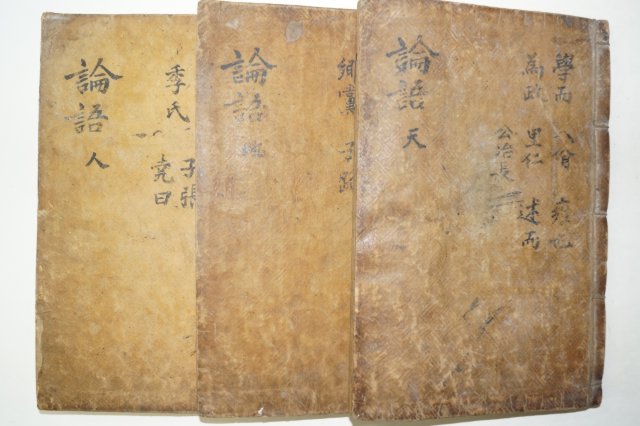 學而 八佾 雍也
為政 里仁 述而
公冶長
論語 天
鄕黨 子路
論語 地
季氏 子張
堯曰
論語 人